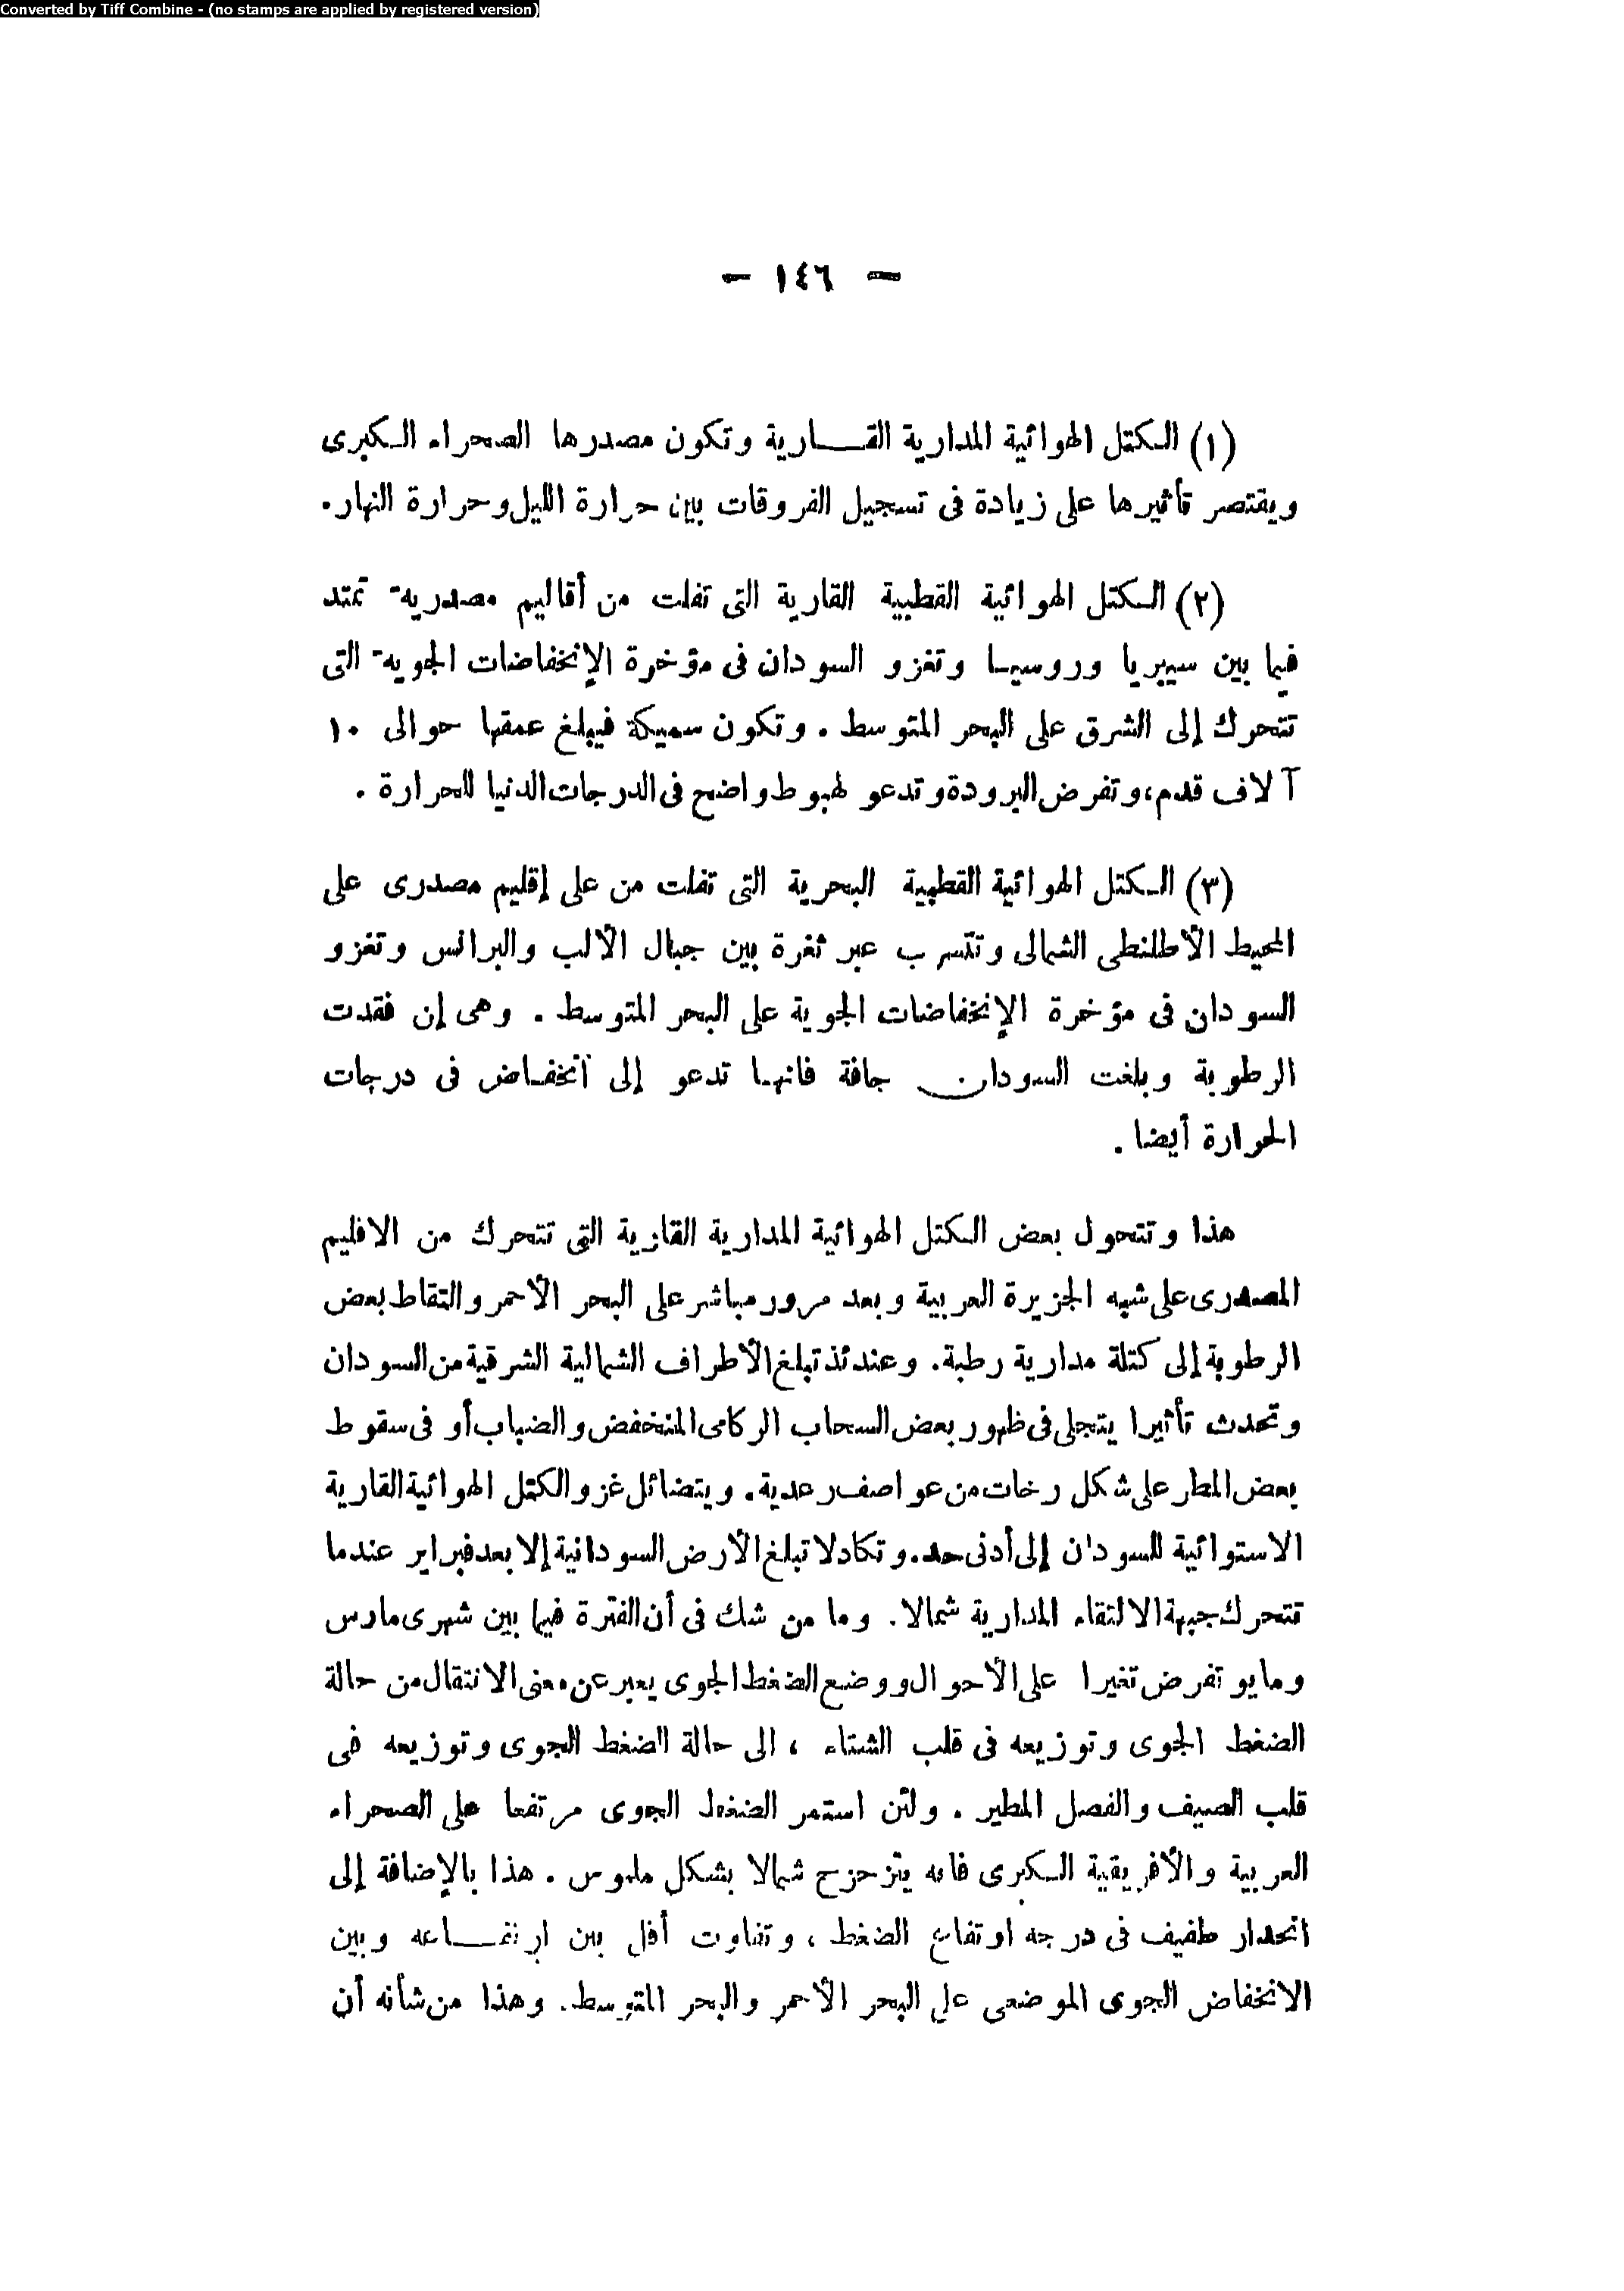 Converted by Tiff Combine - (no stamps are applied by registered version)
— ١٤٦ —
(١) الكتل الهوائية المدارية القارية وتكون مصدرها الصحراء الكبرى
ويقتصر تأثيرها على زيادة فى تسجيل الفروقات بين حرارة الليل وحرارة النهار.
(٢) الكتل الهوائية القطبية القارية التى تفلت من أقاليم مصدرية تمتد
فيما بين سيبريا وروسيا وتغزو السودان فى مؤخرة الإنخفاضات الجوية التى
تتحرك إلى الشرق على البحر المتوسط . وتكون سميكة فيبلغ عمقها حوالى ١٠
آلاف قدم، وتفرض البرودة وتدعو لهبوط واضح فى الدرجات الدنيا للحرارة .
(٣) الكتل الهوائية القطبية البحرية التى تفلت من على إقليم مصدرى على
المحيط الأطلنطى الشمالى وتتسرب عبر ثغرة بين جبال الألب والبرانس وتغزو
السودان فى مؤخرة الإنخفاضات الجوية على البحر المتوسط . وهى إن فقدت
الرطوبة وبلغت السودان جافة فانها تدعو إلى أنخفاض فى درجات
الحرارة أيضا .
هذا وتتحول بعض الكتل الهوائية المدارية القارية التى تتحرك من الاقليم
المصدرى على شبه الجزيرة العربية وبعد مرور مباشر على البحر الأحمر والتقاط بعض
الرطوبة إلى كتلة مدارية رطبة. وعندئذ تبلغ الأطراف الشمالية الشرقية من السودان
وتحدث تأثيرا يتجلى فى ظهور بعض السحاب الركامى المنخفض والضباب أو فى سقوط
بعض المطر على شكل رخات من عواصف رعدية. ويتضائل غزو الكتل الهوائية القارية
الاستوائية للسودان إلى أدنى حد. وتكاد لا تبلغ الأرض السودانية إلا بعد فبراير عندما
تتحرك جبهة الالتقاء المدارية شمالا. وما من شك فى أن الفترة فيما بين شهرى مارس
ومايو تفرض تغيرا على الأحوال ووضع الضغط الجوى يعبر عن معنى الانتقال من حالة
الضغط الجوى وتوزيعه فى قلب الشتاء ، الى حالة الضغط الجوى وتوزيعه فى
قلب الصيف والفصل المطير . ولئن استمر الضغط الجوى مرتفعا على الصحراء
العربية والأفريقية الكبرى فانه يتزحزح شمالا بشكل ملموس . هذا بالإضافة إلى
انحدار طفيف فى درجة ارتفاع الضغط ، وتفاوت أقل بين ارتفاعه وبين
الانخفاض الجوى الموضعى على البحر الأحمر والبحر المتوسط. وهذا من شأنه أن